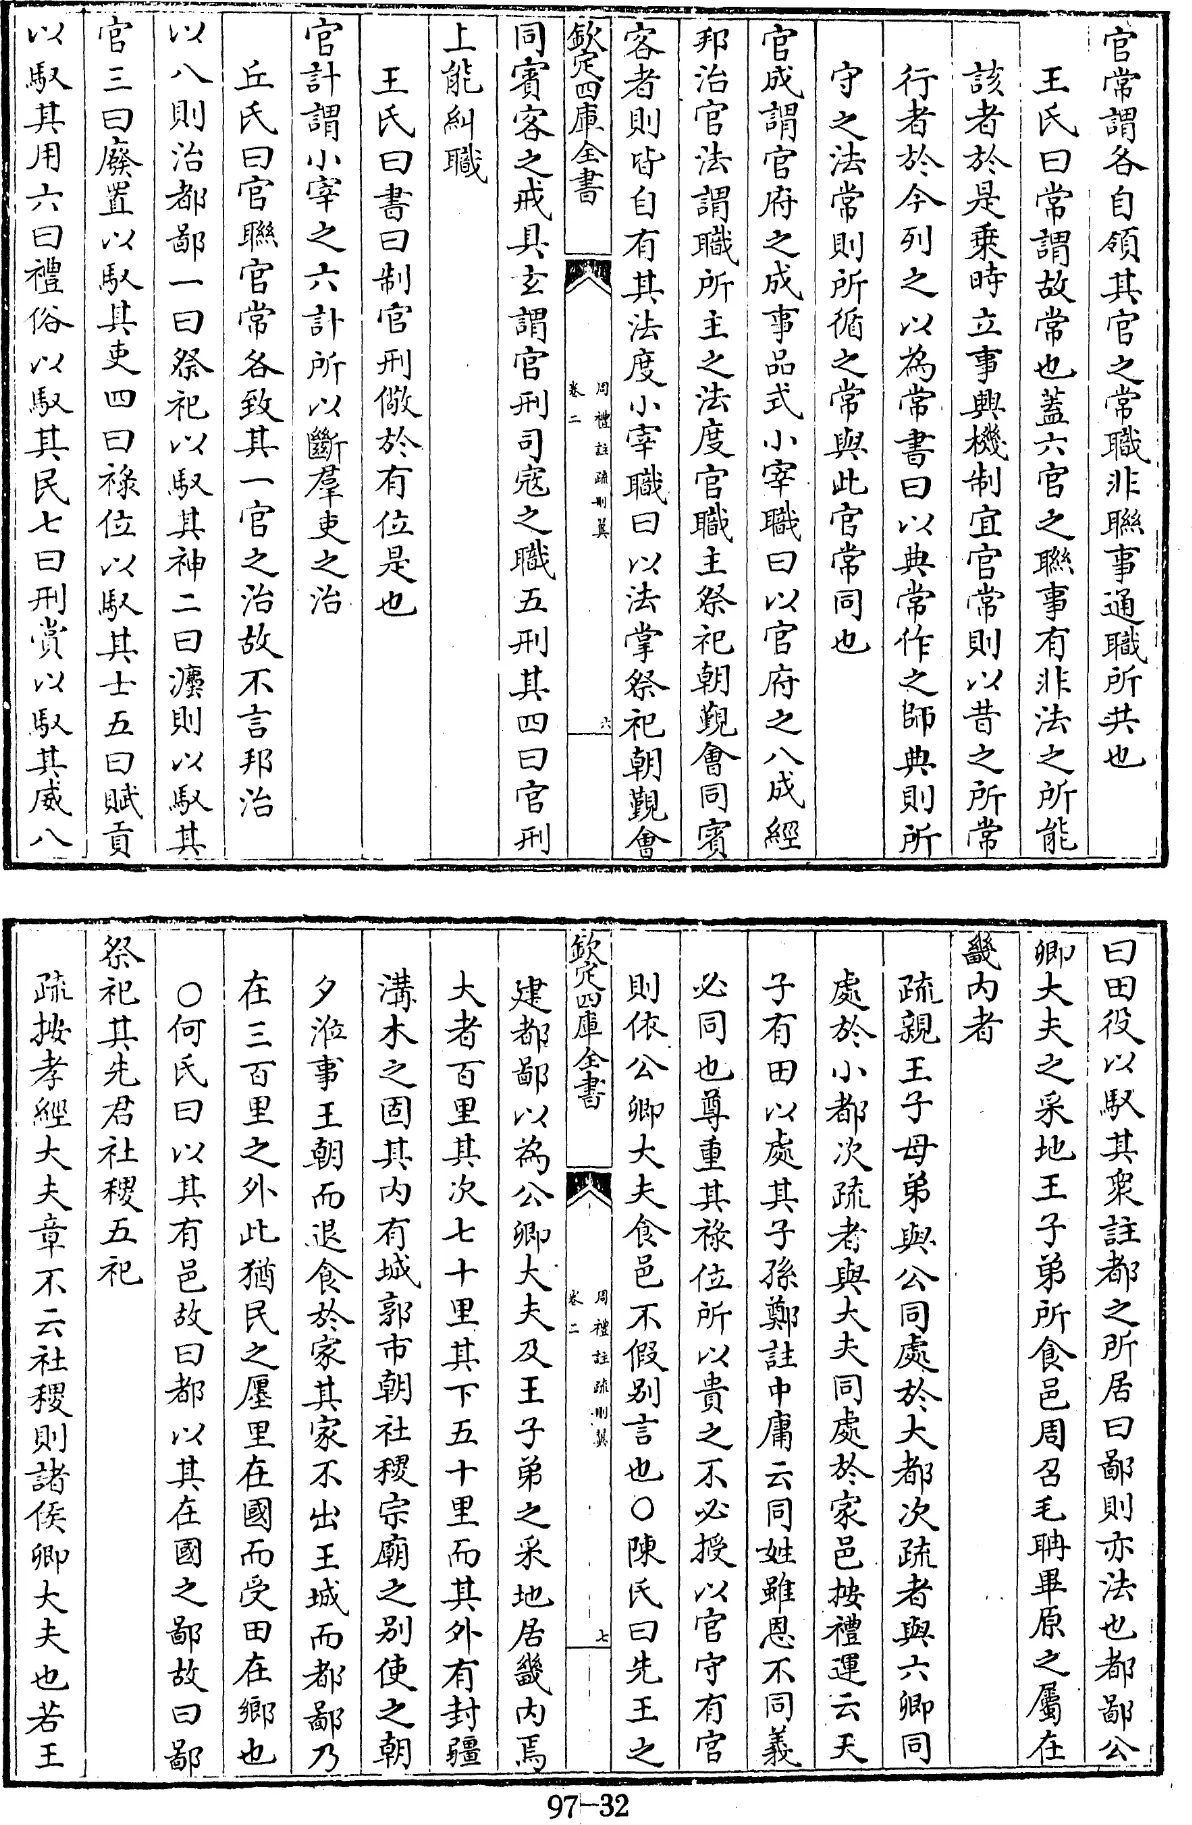 官常謂各自領其官之常職非聯事通職所共也
王氏曰常謂故常也蓋六官之聯事有非法之所能
該者於是乗時立事興機制宜官常則以昔之所常
行者於今列之以為常書曰以典常作之師典則所
守之法常則所循之常與此官常同也
官成謂官府之成事品式小宰職曰以官府之八成經
邦治官法謂職所主之法度官職主祭祀朝覲會同賓
客者則皆自有其法度小宰職曰以法掌祭祀朝覲會
欽定四庫全書
周禮註疏刪翼
卷二
六
同賓客之戒具玄謂官刑司宼之職五刑其四曰官刑
上能糾職
王氏曰書曰制官刑儆於有位是也
官計謂小宰之六計所以斷羣吏之治
丘氏曰官聯官常各致其一官之治故不言邦治
以八則治都鄙一曰祭祀以馭其神二曰灋則以馭其
官三曰廢置以馭其吏四曰祿位以馭其士五曰賦貢
以馭其用六曰禮俗以馭其民七曰刑賞以馭其威八
曰田役以馭其衆註都之所居曰鄙則亦法也都鄙公
卿大夫之采地王子弟所食邑周召毛聃畢原之屬在
畿内者
疏親王子母弟與公同處於大都次疏者與六卿同
處於小都次疏者與大夫同處於家邑按禮運云天
子有田以處其子孫鄭註中庸云同姓雖恩不同義
必同也尊重其祿位所以貴之不必授以官守有官
則依公卿大夫食邑不假別言也○陳氏曰先王之
欽定四庫全書
周禮註疏刪翼
卷二
七
建都鄙以為公卿大夫及王子弟之采地居畿内焉
大者百里其次七十里其下五十里而其外有封疆
溝木之固其内有城郭市朝社稷宗廟之别使之朝
夕涖事王朝而退食於家其家不出王城而都鄙乃
在三百里之外此猶民之廛里在國而受田在鄉也
○何氏曰以其有邑故曰都以其在國之鄙故曰鄙
祭祀其先君社稷五祀
疏按孝經大夫章不云社稷則諸侯卿大夫也若王
97-32